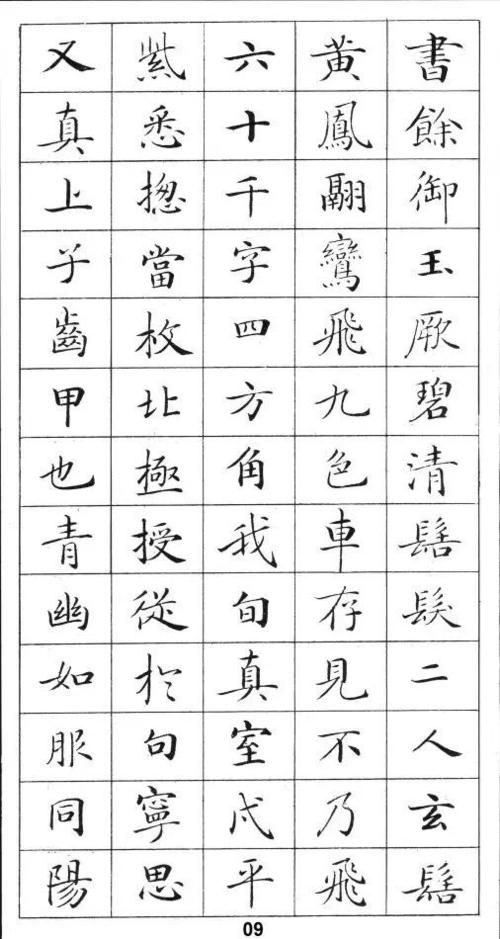 書餘御玉厥碧清髻髮二人玄髻
黃鳳翮鸞飛九色車存見不乃飛
六十千字四方角我旬真室戌平
紫悉揔當枚北極授從於句寧思
又真上子齒甲也青幽如服同陽
09